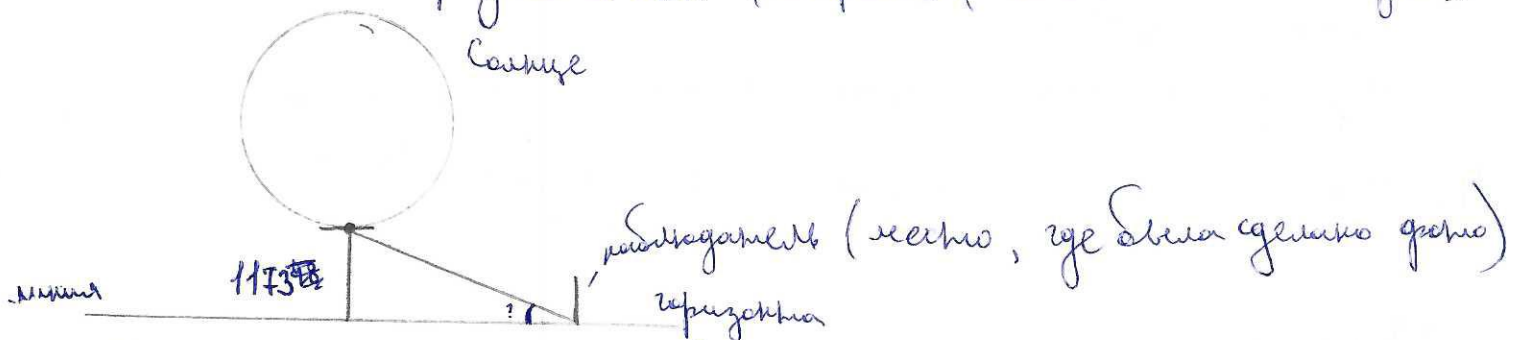 Солнце
наблюдатель (место, где была сделано фото)
1173
линия
?
горизонта